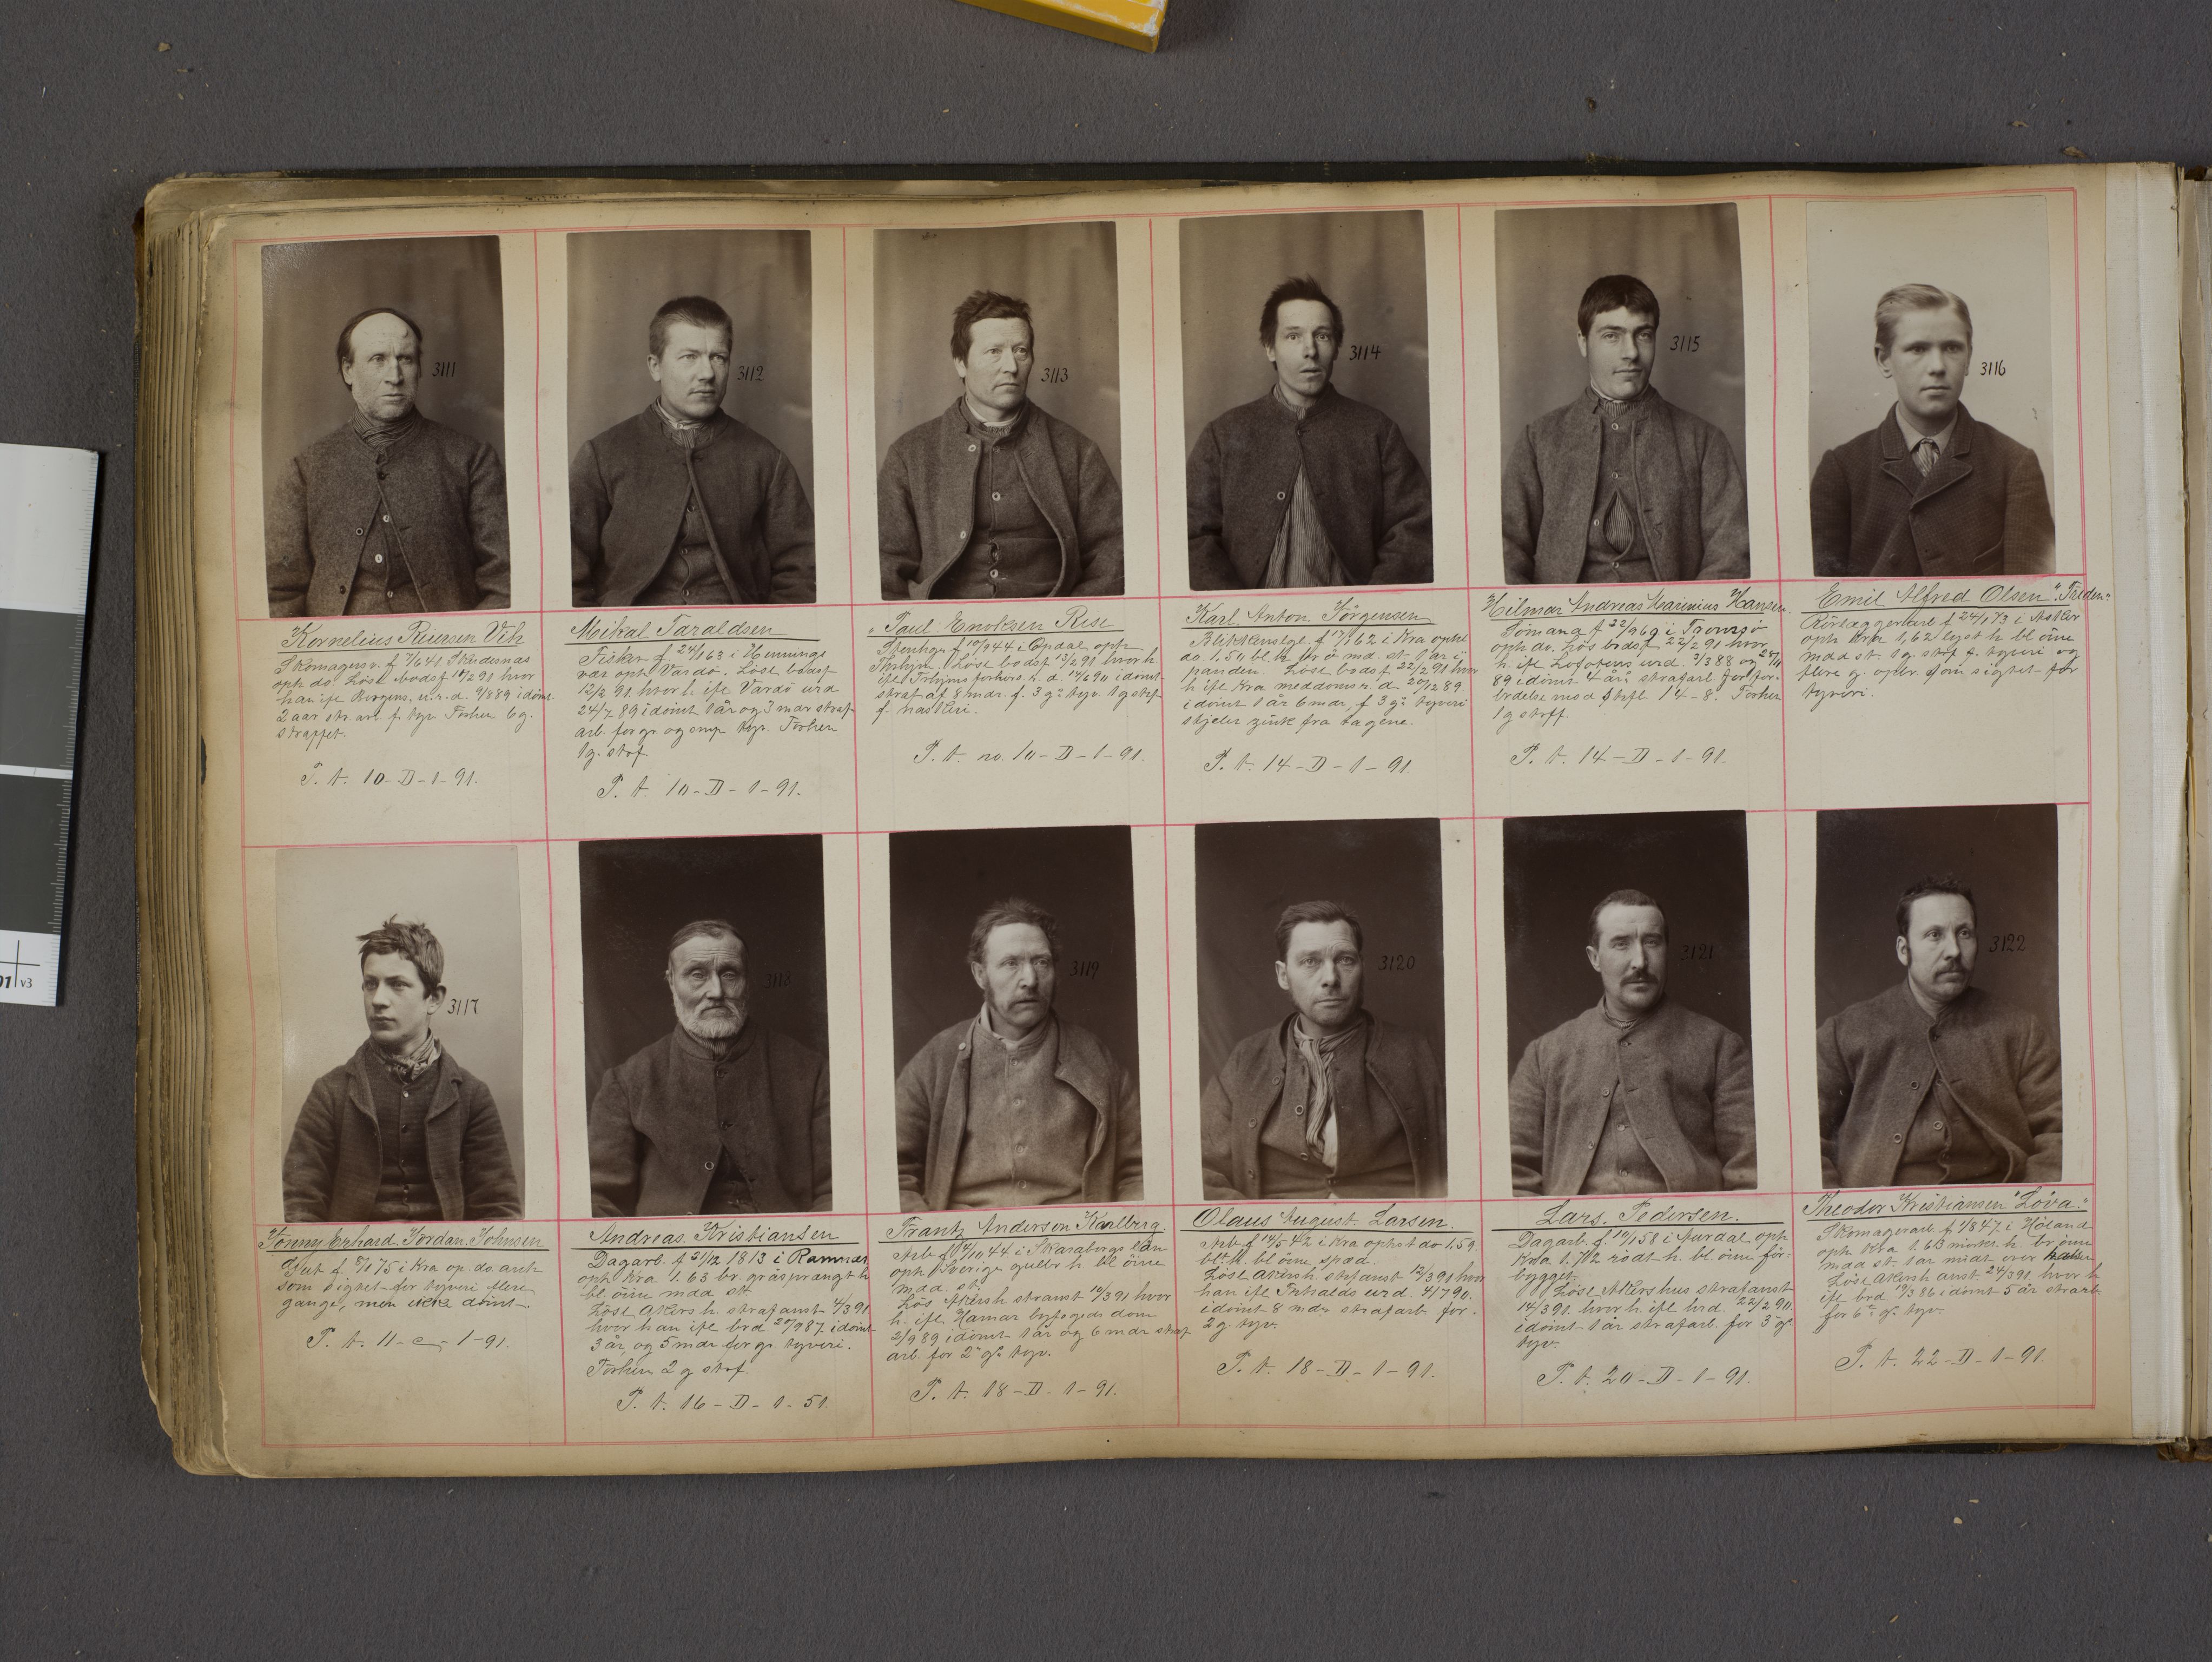 3111
Kornelius Riersen Vik
Skomagersv. f 7/6 41 Skudesnæs
oph do Löse bodsf 10/2 91 hvor
han ifl Bergens u.r.d. 9/8 89 idömt
2 aar str. arb f. tyv. Forhen 6 g.
straffet.
P. t. 10-D-1-91.
3112
Mikal Taraldsen
Fisker f 24/1 63 i Hennings
vær oph Vardö. Löse bodsf
12/2 91 hvor h ifl Vardö urd
24/7 89 idömt 1 år og 3 mdr straf
arb. for gr. og smp tyv. Forhen
1 g. strf.
P. t. 10-D-1-91.
3113
Paul Enoksen Rise
f 10/9 44 i Opdal oph
Löse bodsf 13/2 91 hvor h.
idömt
straf af 8 mdr. f. 3 g⁠s tyv. 1 g stfet
f.
P. t. no. 10-D-1-91.
3114
Karl Anton Jörgensen
f 17/1 62 i Kra opht
do. 1,50 bl. h. br ö md. st. 1 ar i
panden. Löse bodsf 22/2 91 hvor
h ifl Kra meddomsr. d. 20/12 89.
idömt 1 år 6 mdr, f 3 g⁠s tyveri
stjeler zink fra tagene.
P. t. 14-D-1-91.
3115
Hilmar Andreas Marinius Hansen.
Sömand f 22/9 69 i Tromsö
oph do. Lös bodsf 22/2 91 hvor
h. ifl Lofotens urd. 3/3 88 og 28/11
89 idömt 4 års strafarb for for-
brdelse mod Strfl 14-8. Forhen
1 g strff.
P. t. 14-D-1-91.
3116
Emil Alfred Olsen "Friden"
Rörlæggerlærl f 24/1 73 i Asker
oph Kra 1,62 lyst h bl öine
mdd st. 1 g. strf f. tyveri og
flere g. opbr som sigtet for
tyveri.
3117
Jonny Erhard Jordan Johnsen
Gut f. 5/1 75 i Kra op. do arch
som sigtet for tyveri flere
gange, men ikke dömt
P. t. 11-c-1-91.
3118
Andreas Kristiansen
Dagarb. f 21/12 1813 i Ramnæs
oph Kra 1.63 br. gråsprængt h
bl öine mdd st
Löse Akersh. strafanst 4/3 91
hvor han ifl brd 20/9 87 idömt
3 år og 5 mdr for gr. tyveri.
Forhen 2 g strf.
P. t. 16-D-1-51.
3119
Frantz Anderson Karlberg.
Arb f 14/10 44 i Skaraborgs län
oph Sverige gulbr h. bl öine
mdd. st.
Lös Akersh stranst 10/3 91 hvor
h. ifl Hamar byfogds dom
2/9 89 idömt 1 år og 6 mdr straf
arb. for 2⁠n g⁠s tyv.
P. t. 18-D-1-91.
3120
Olaus August Larsen.
Arb f 14/5 42 i Kra ophst do 1,59.
blt. h. bl öine spæd.
Löse Akersh strfanst 12/3 91 hvor
han ifl Frhalds urd. 4/7 90.
idömt 8 mdr strafarb. for
2 g. tyv.
P. t. 18-D-1-91.
3121
Lars Pedersen.
Dagarb. f. 10/1 58 i Aurdal oph
Kra 1.702 rödt h. bl öine før-
bygget.
Löse Akershus strafanst
14/3 91. hvor h. ifl hrd. 22/2 90.
idömt 1 år strafarb. for 3⁠die g⁠s
tyv.
P. t. 20-D-1-91.
3122
Theodor Kristiansen "Löva"
Skomagerarb f. 1/8 47 i Höland
oph Kra 1.613 mörkt h. br öine
mdd st. 1 ar midt over
Löse Akersh anst. 24/3 91. hvor h
ifl brd 10/3 86 idömt 5 år strarb
for 6⁠te g⁠s tyv.
P. t. 22-D-1-91.